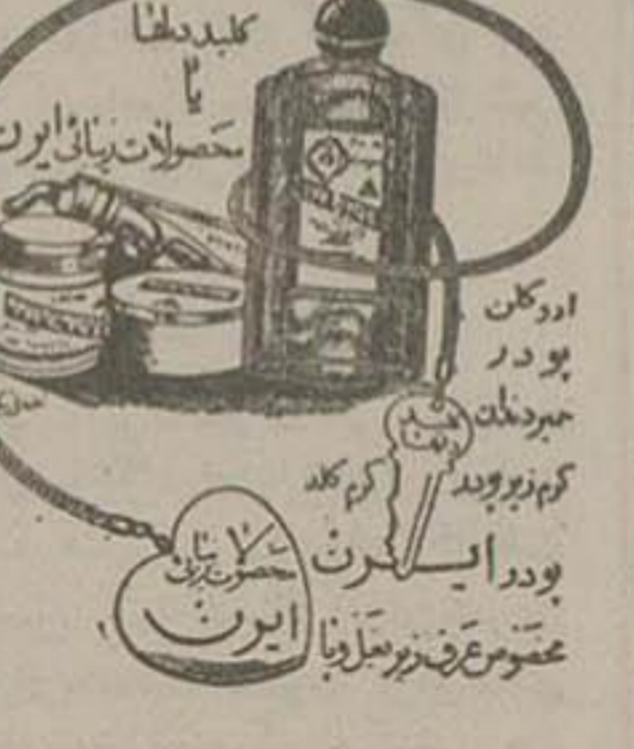 کلید دلها
یا
محصولات زیبائی ایرن
ادوکلن
پودر
خمیر دندان
کرم زیر پودر کرم کلد
پودر ایرن
مخصوص عرق زیر بغل و پا
کلید
دلها
محصولات زیبائی
ایرن